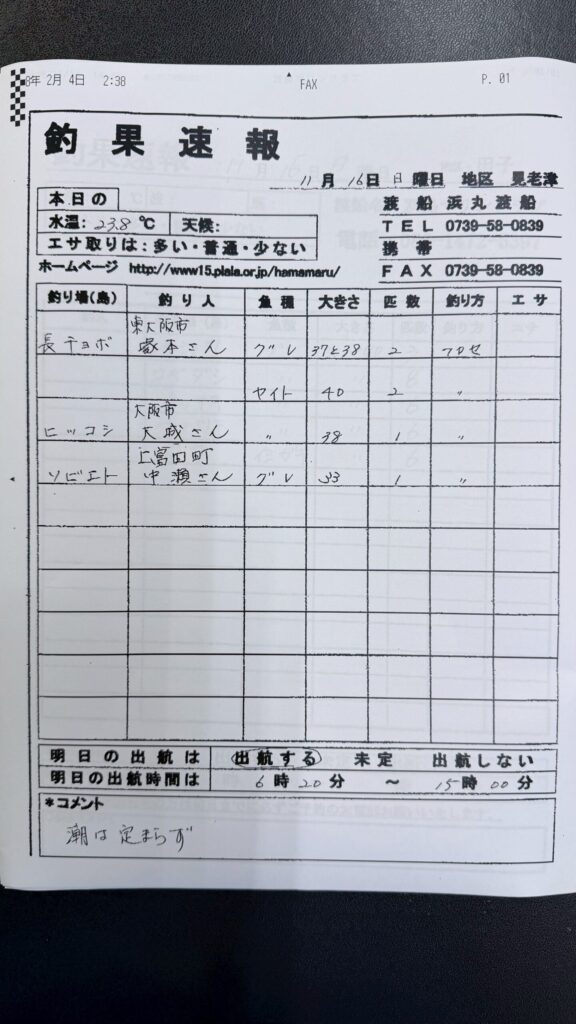 8年 2月 4日 2:38 FAX P. 01
釣果速報
11月16日 日曜日 地区 見老津
本日の
渡船 浜丸渡船
水温: 23.8 ℃ 天候:
TEL 0739-58-0839
エサ取りは:多い・普通・少ない
携帯
ホームページ http://www15.plala.or.jp/hamamaru/
FAX 0739-58-0839
釣り場(島) 釣り人 魚種 大きさ 匹数 釣り方 エサ
東大阪市
長チョボ 塚本さん グレ 37と38 2 フカセ
サイト 40 2 〃
大阪市
ヒッコシ 大成さん 〃 38 1 〃
上富田町
ソビエト 中瀬さん グレ 33 1 〃
明日の出航は 出航する 未定 出航しない
明日の出航時間は 6時20分 ～ 15時00分
*コメント
潮は定まらず